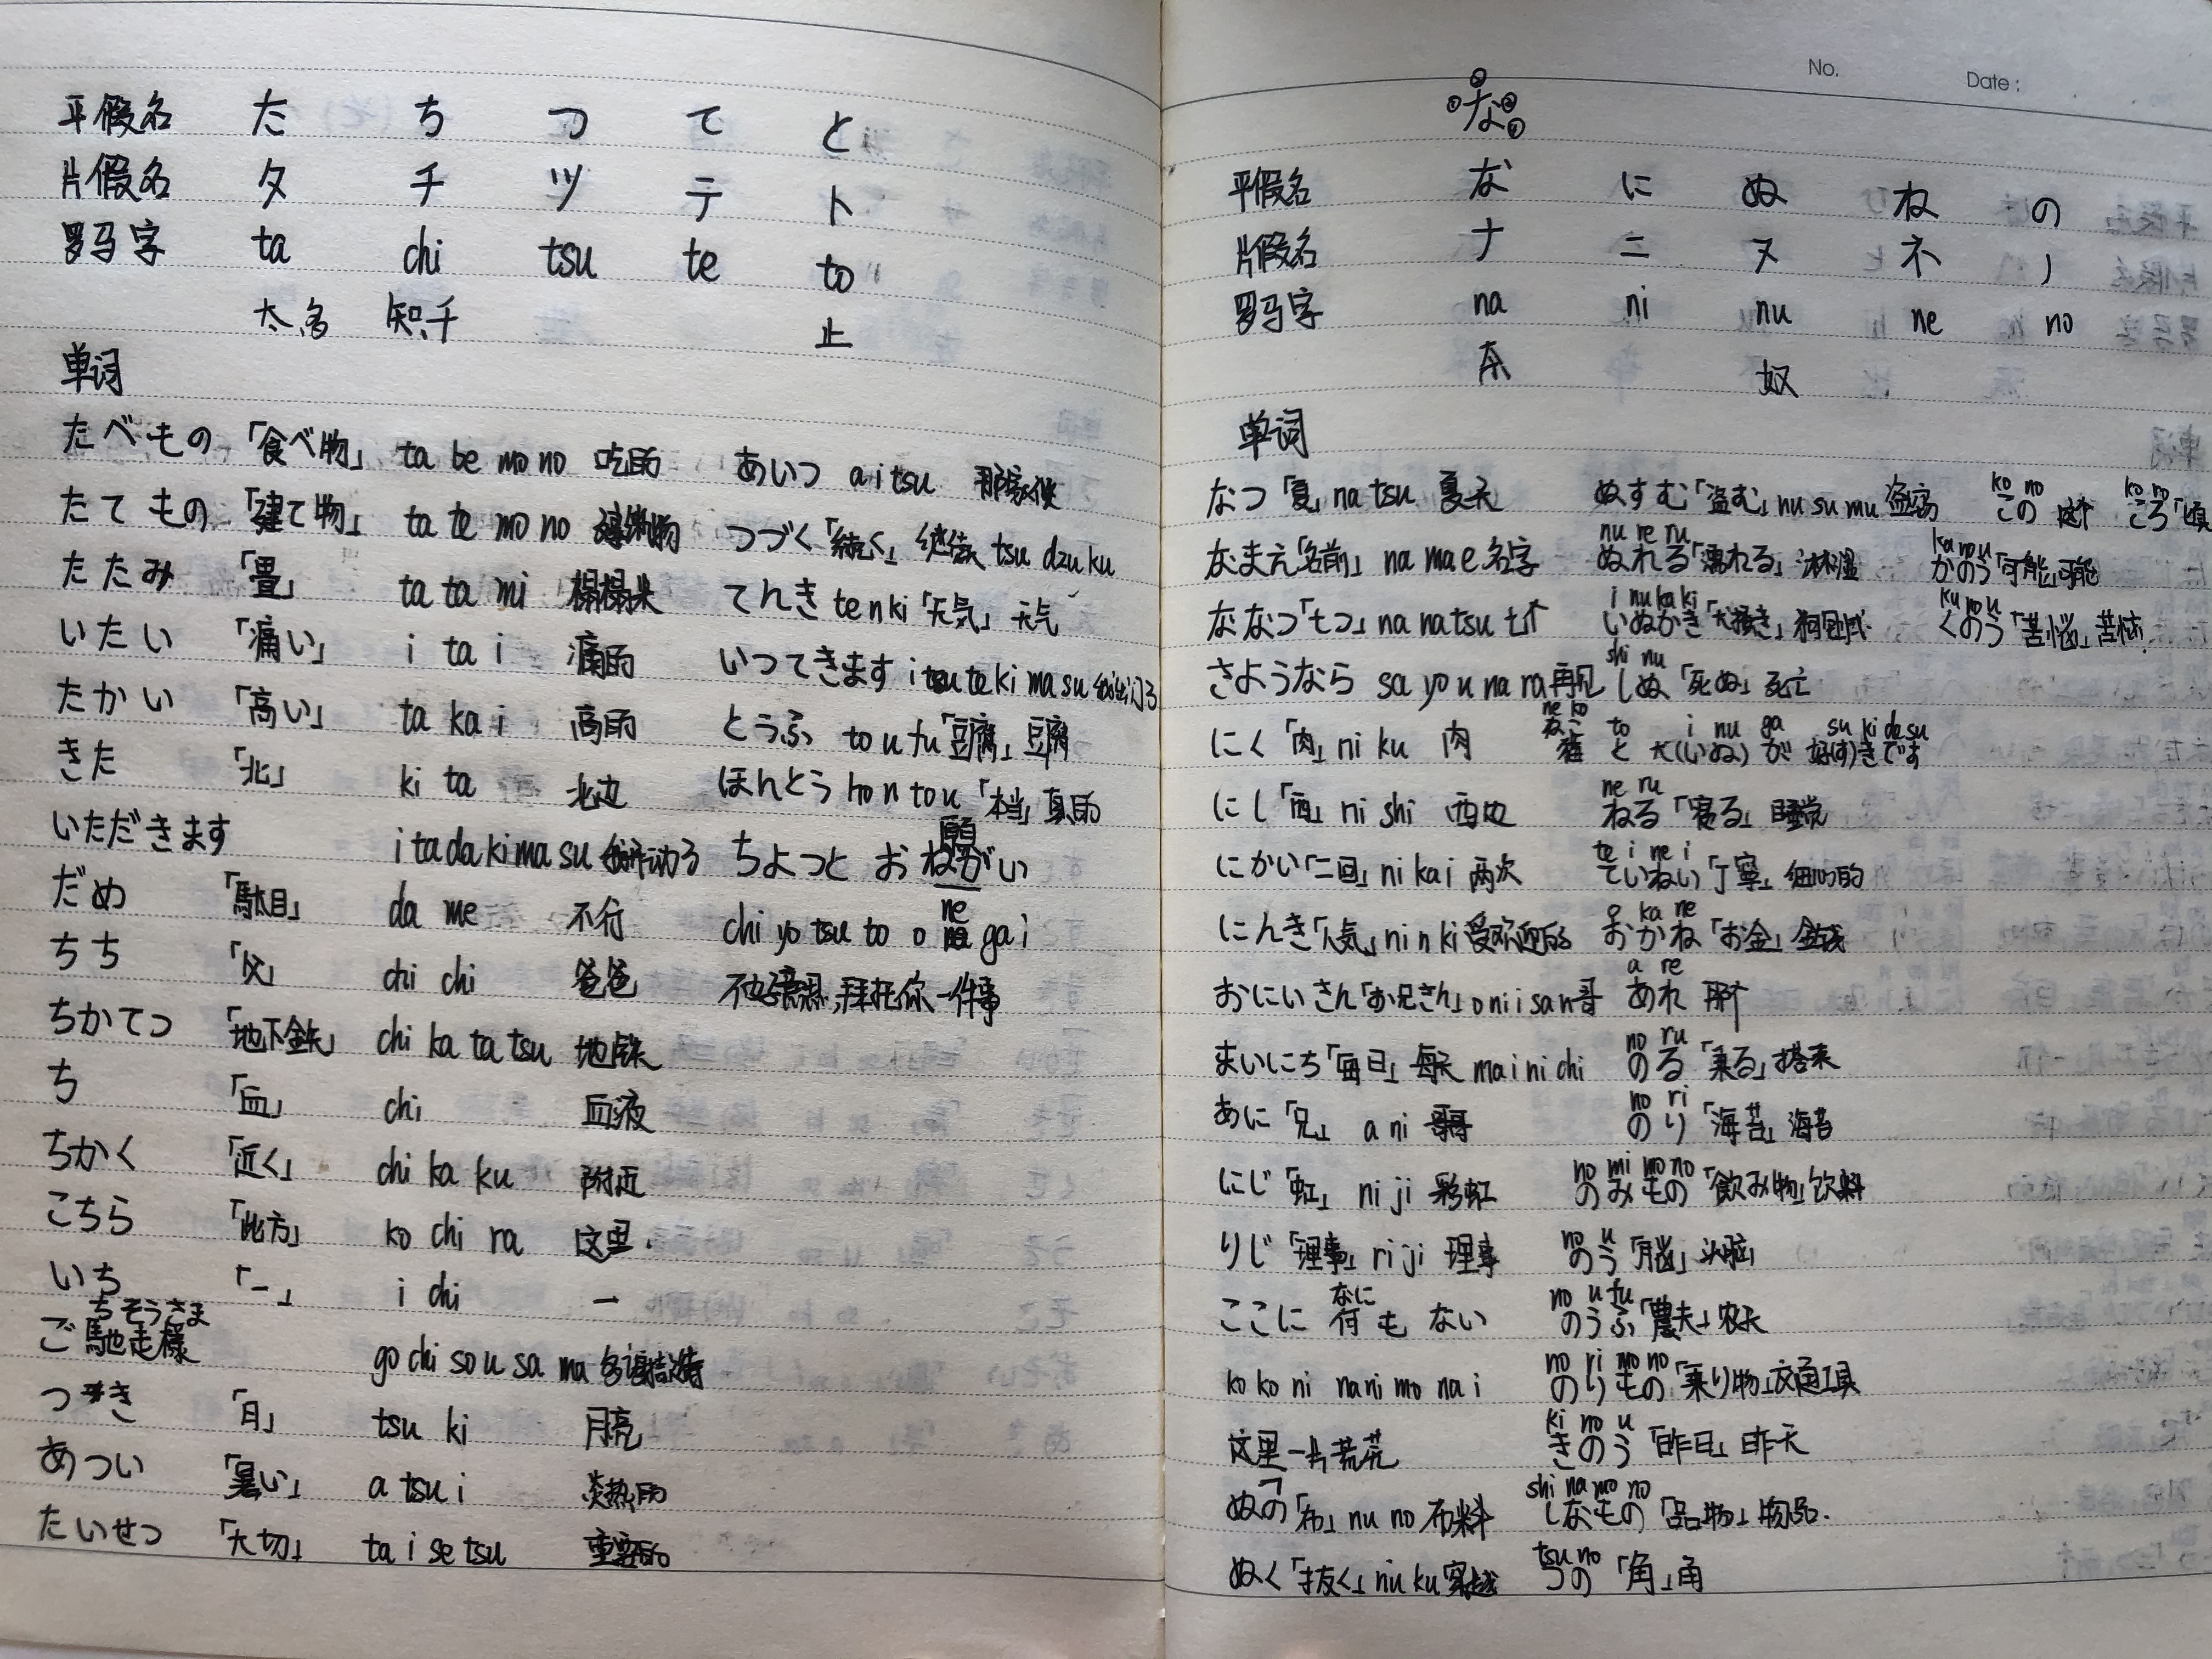 平假名 た ち つ て と
片假名 タ チ ツ テ ト
罗马字 ta chi tsu te to
太多 知千 止
单词
たべもの 「食べ物」 ta be mo no 吃的
たてもの 「建て物」 ta te mo no 建筑物
たたみ 「畳」 ta ta mi 榻榻米
いたい 「痛い」 i ta i 痛的
たかい 「高い」 ta ka i 高的
きた 「北」 ki ta 北边
いただきます i ta da ki ma su 我开动了
だめ 「駄目」 da me 不行
ちち 「父」 chi chi 爸爸
ちかてつ 「地下鉄」 chi ka ta tsu 地铁
ち 「血」 chi 血液
ちかく 「近く」 chi ka ku 附近
こちら 「此方」 ko chi ra 这里.
いち 「一」 i chi 一
ちそうさま
ご馳走様 go chi so u sa ma 多谢款待
つき 「月」 tsu ki 月亮
あつい 「暑い」 a tsu i 炎热的
たいせつ 「大切」 ta i se tsu 重要的
あいつ a i tsu 那家伙
つづく「続く」 继续 tsu dzu ku
てんき te n ki「天気」天气
いつてきます i tsu te ki ma su 我出门了
とうふ to u fu「豆腐」豆腐
ほんとう ho n to u「本当」真的
願
ちよつと おねがい
ne
chi yo tsu to o gai
不好意思,拜托你一件事
No. Date:
な
平假名 な に ぬ ね の
片假名 ナ ニ ヌ ネ ノ
罗马字 na ni nu ne no
奴
单词
なつ「夏」na tsu 夏天
なまえ「名前」na ma e 名字
ななつ「七つ」na na tsu 七个
さようなら sa yo u na ra 再见
にく「肉」ni ku 肉
にし「西」ni shi 西边
にかい「二回」ni ka i 两次
にんき「人気」ni n ki 受欢迎的
おにいさん「お兄さん」o n i i sa n 哥
まいにち「毎日」每天 ma i ni chi
あに「兄」a ni 哥哥
にじ「虹」ni ji 彩虹
りじ「理事」ri ji 理事
なに
ここに 何も ない
ko ko ni na ni mo na i
这里一片荒芜
ぬの「布」nu no 布料
ぬく「抜く」nu ku 穿越
ko no ko no
ぬすむ「盗む」nu su mu 盗窃 この 这个 ころ「頃
nu re ru ka no u
ぬれる「濡れる」淋湿 かのう「可能」可能
i nu ka ki ku no u
いぬかき「犬掻き」狗刨式 くのう「苦悩」苦恼.
shi nu
しぬ「死ぬ」死亡
ne ko to i nu ga su ki de su
ねこ 猫 と 犬(いぬ) が 好(す)きです
ne ru
ねる「寝る」睡觉
te i ne i
ていねい「丁寧」细心的
o ka ne
おかね「お金」金钱
a re
あれ 那个
no ru
のる「乗る」搭乘
no ri
のり「海苔」海苔
no mi mo no
のみもの「飲み物」饮料
no u
のう「脳」头脑
no u fu
のうふ「農夫」农夫
no ri mo no
のりもの「乗り物」交通工具
ki no u
きのう「昨日」昨天
shi na mo no
しなもの「品物」物品.
tsu no
つの「角」角